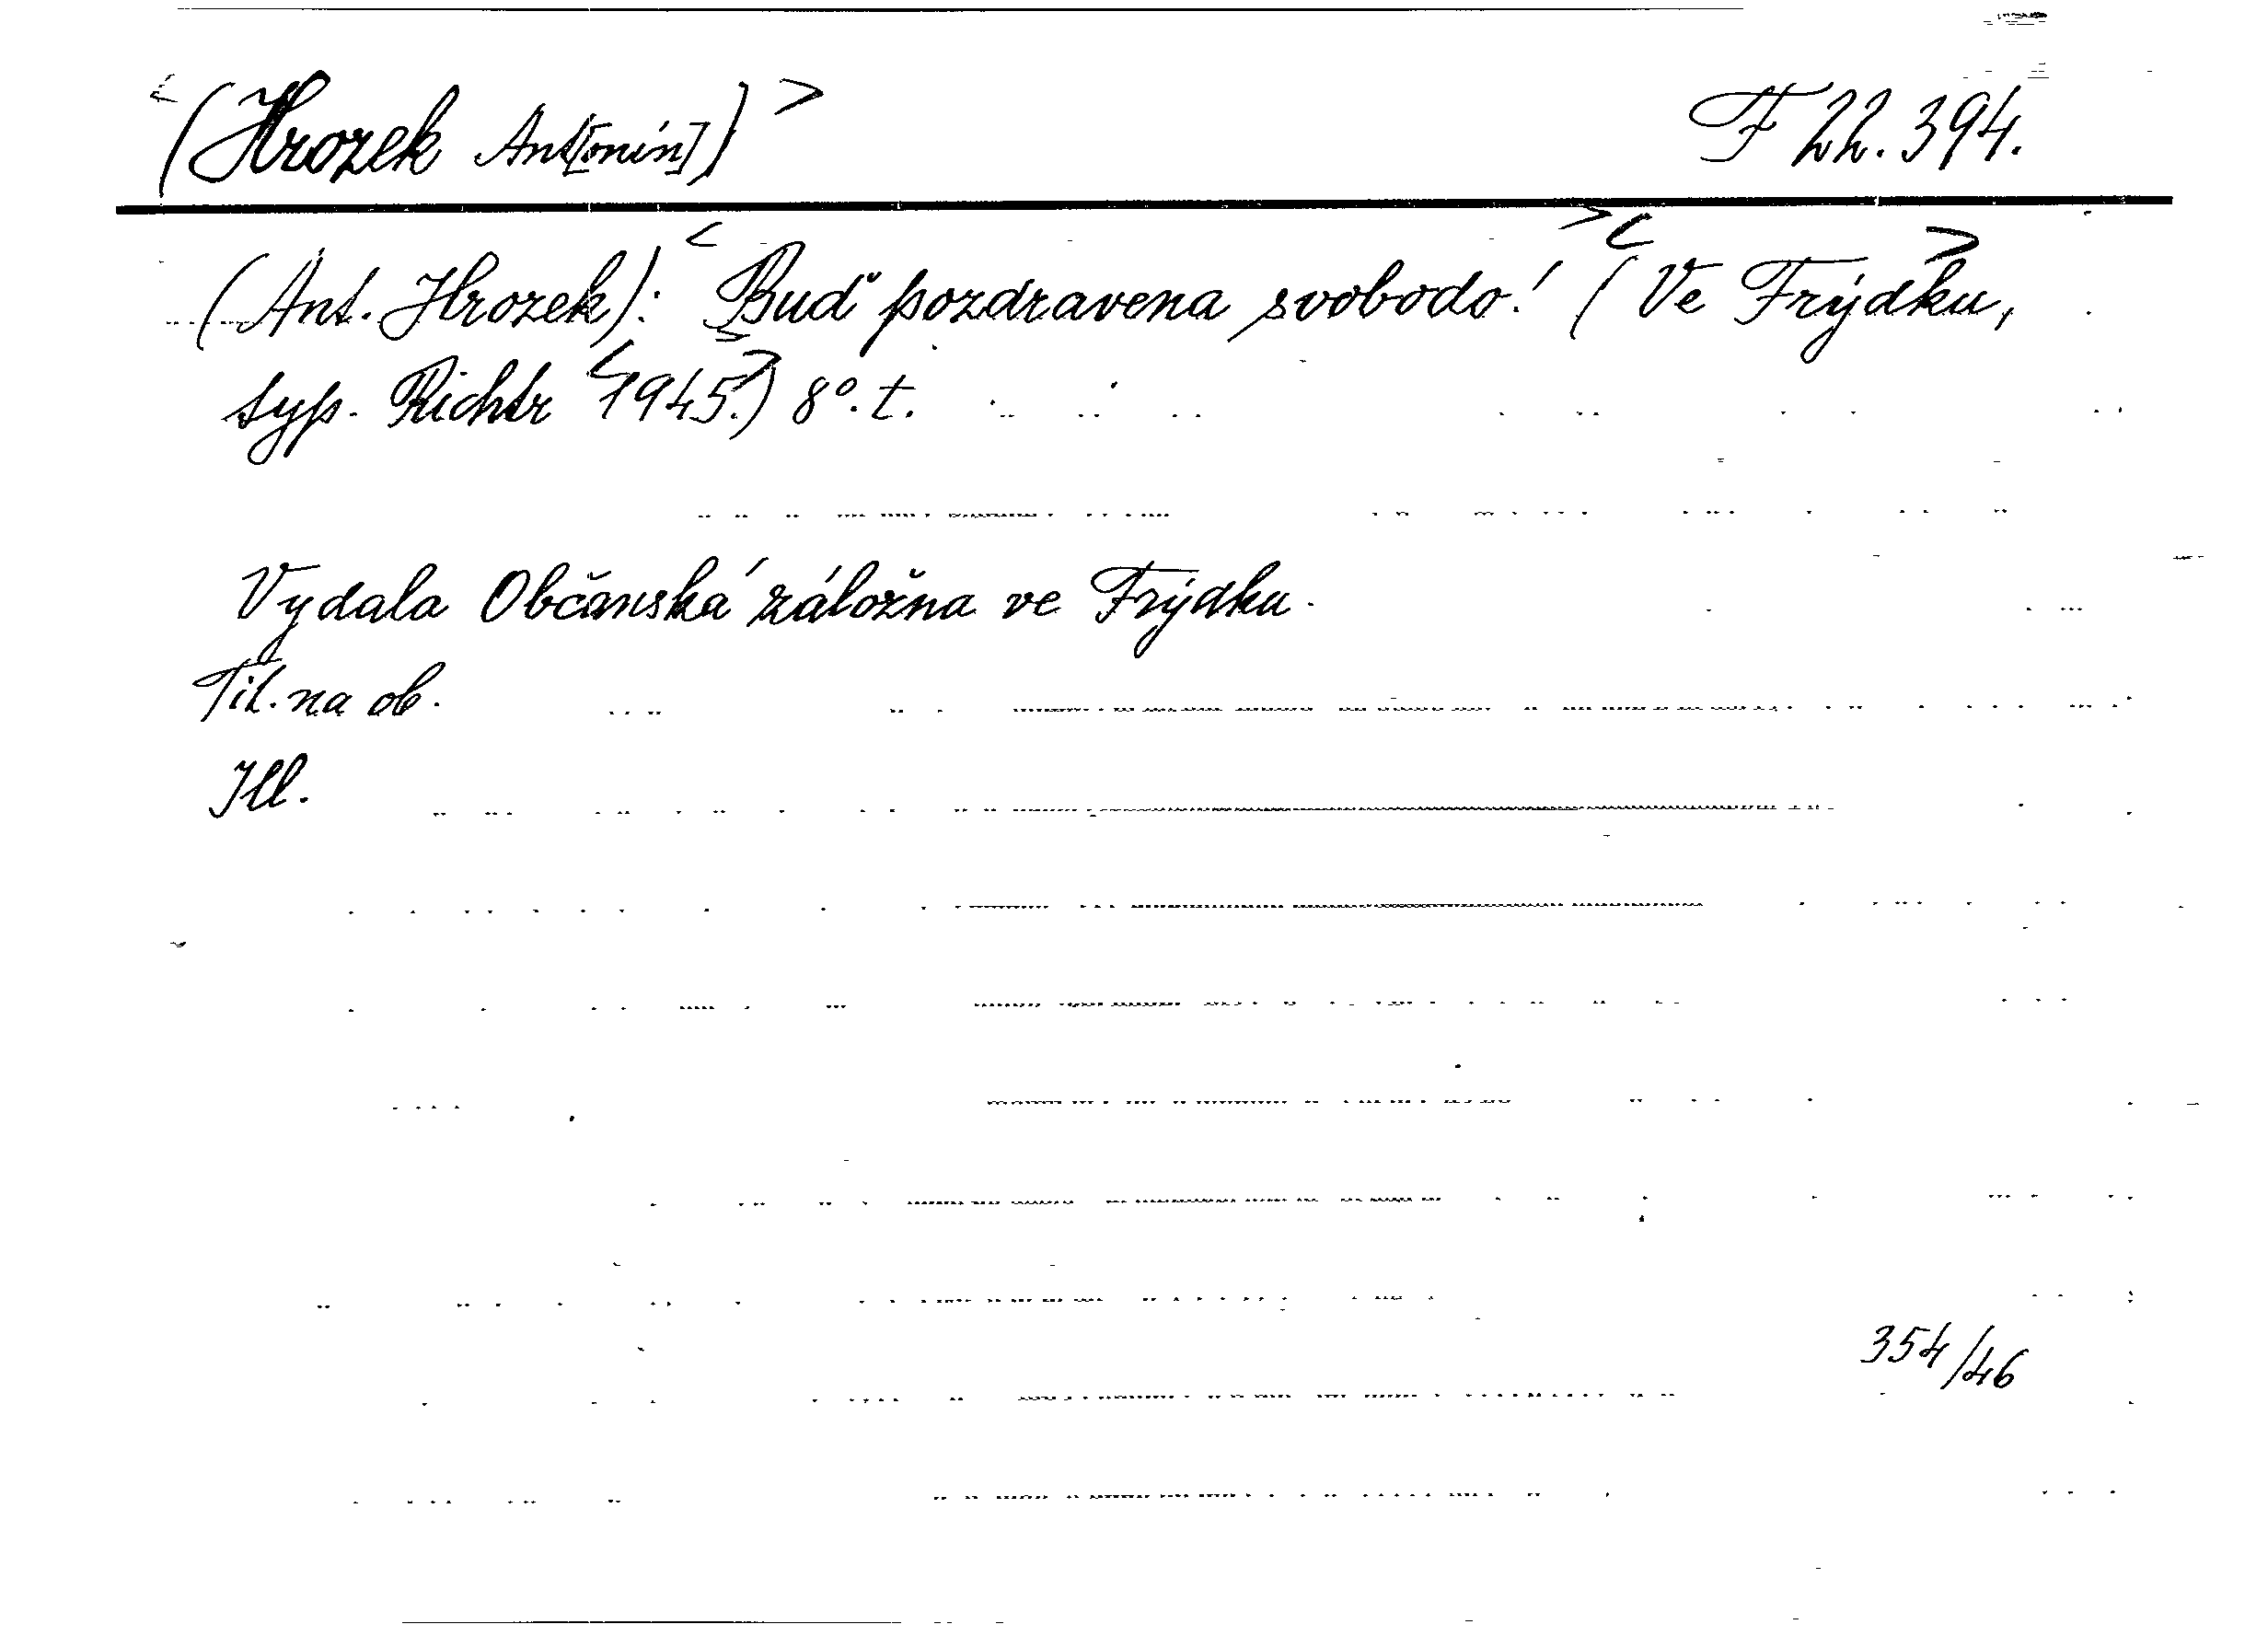 <(Hrozek Ant[onín])> F 22.394.
(Ant. Hrozek): <Buď pozdravena svobodo!> (<Ve Frýdku>,
typ. Richtr <1945.>) 8°. t.
Vydala Občanská záložna ve Frýdku.
Tit. na ob.
Ill.
354/46